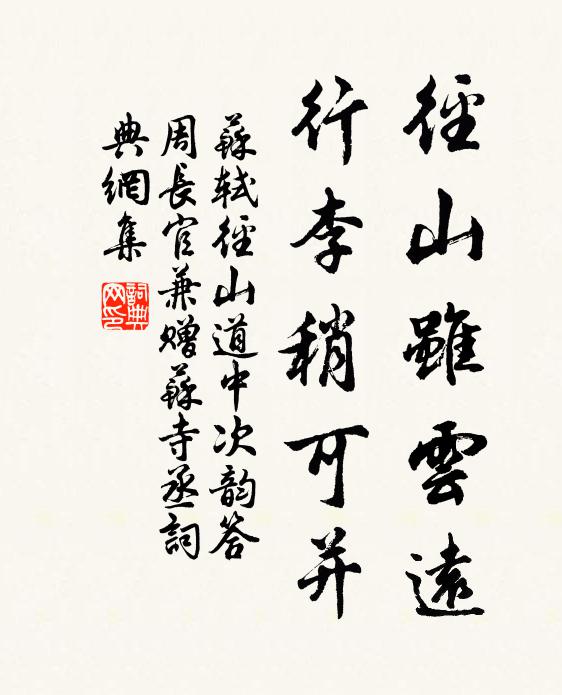 徑山雖雲遠
行李稍可并
蘇軾徑山道中次韵答
周長官兼贈蘇寺丞詞
典網集
詞典
网印